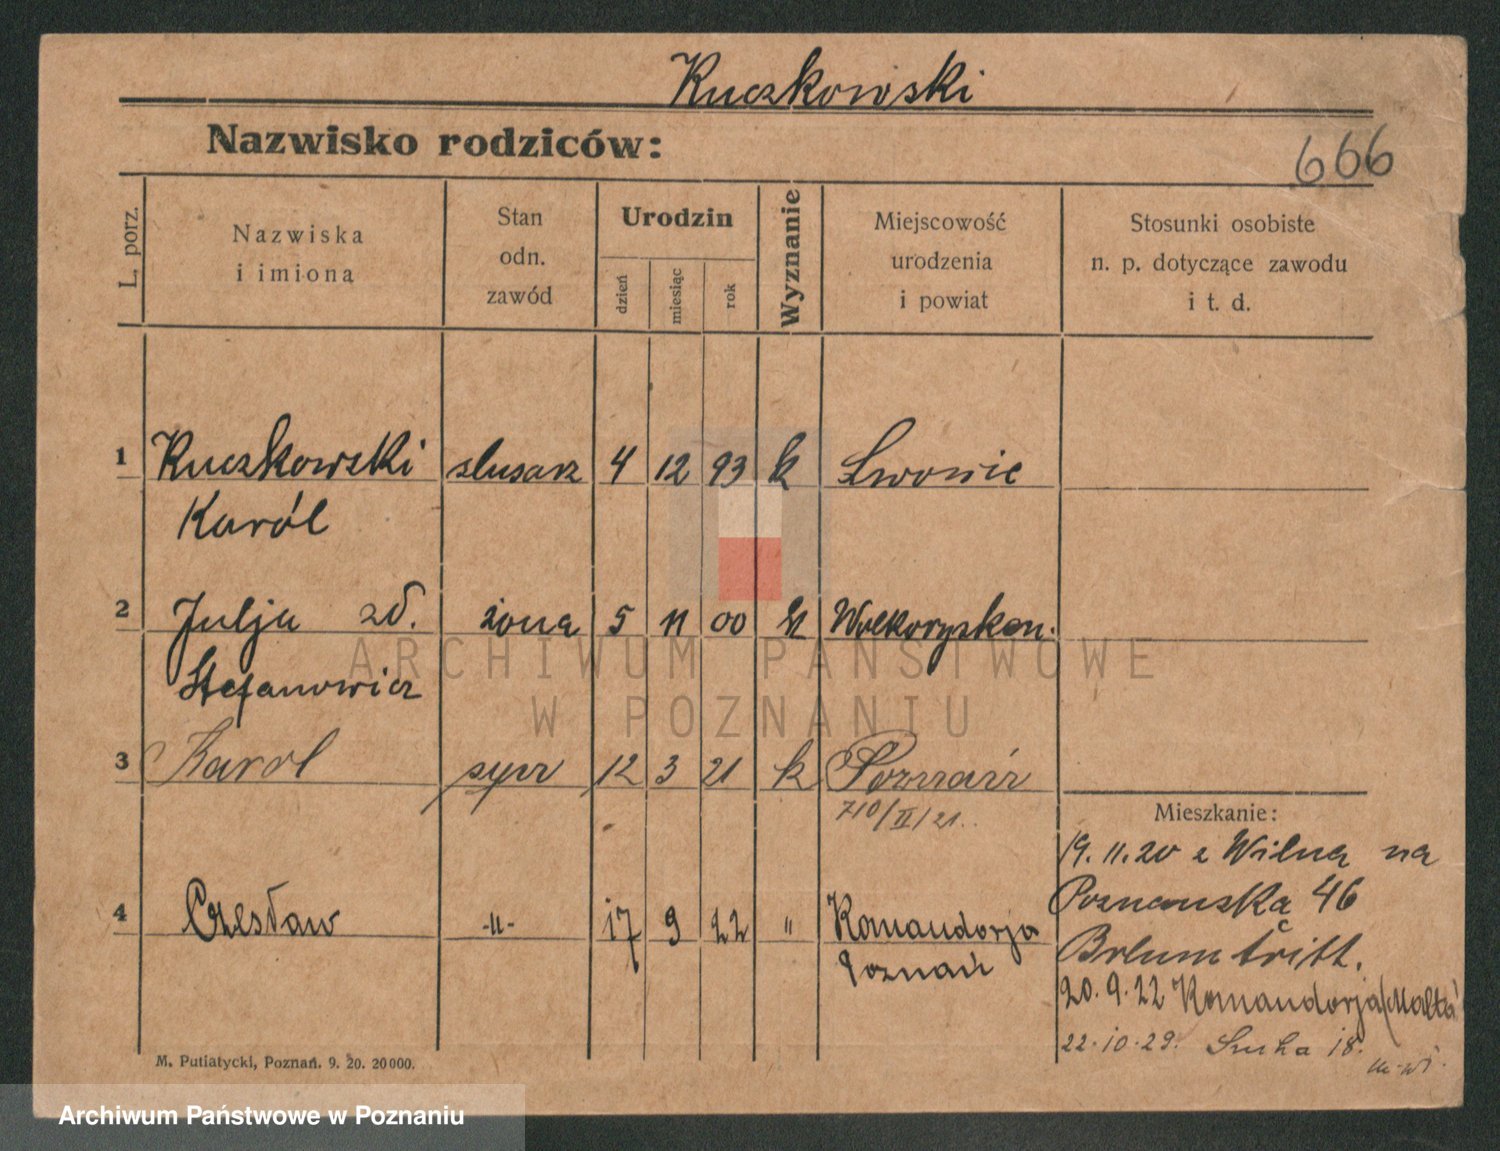 Kuczkowski
Nazwisko rodziców:
666
L. porz.
Nazwiska
i imiona
Stan
odn.
zawód
Urodzin
dzień
miesiąc
rok
Wyznanie
Miejscowość
urodzenia
i powiat
Stosunki osobiste
n. p. dotyczące zawodu
i t. d.
1 Kuczkowski slusarz 4 12 93 k Lwowie
Karól
2 Julja zd. żona 5 11 00 k Wołkoryskon.
Stefanowicz
3 Karol syn 12 3 21 k Poznań
710/II/21.
4 Czesław -"- 17 9 22 " Komandorja
Poznań
Mieszkanie:
19.11.20 z Wilna na
Poznańska 46
20.9.22 Komandorja/Malta
22.10.29. 18.
M. Putiatycki, Poznań. 9. 20. 20000.
ARCHIWUM PAŃSTWOWE
W POZNANIU
Archiwum Państwowe w Poznaniu